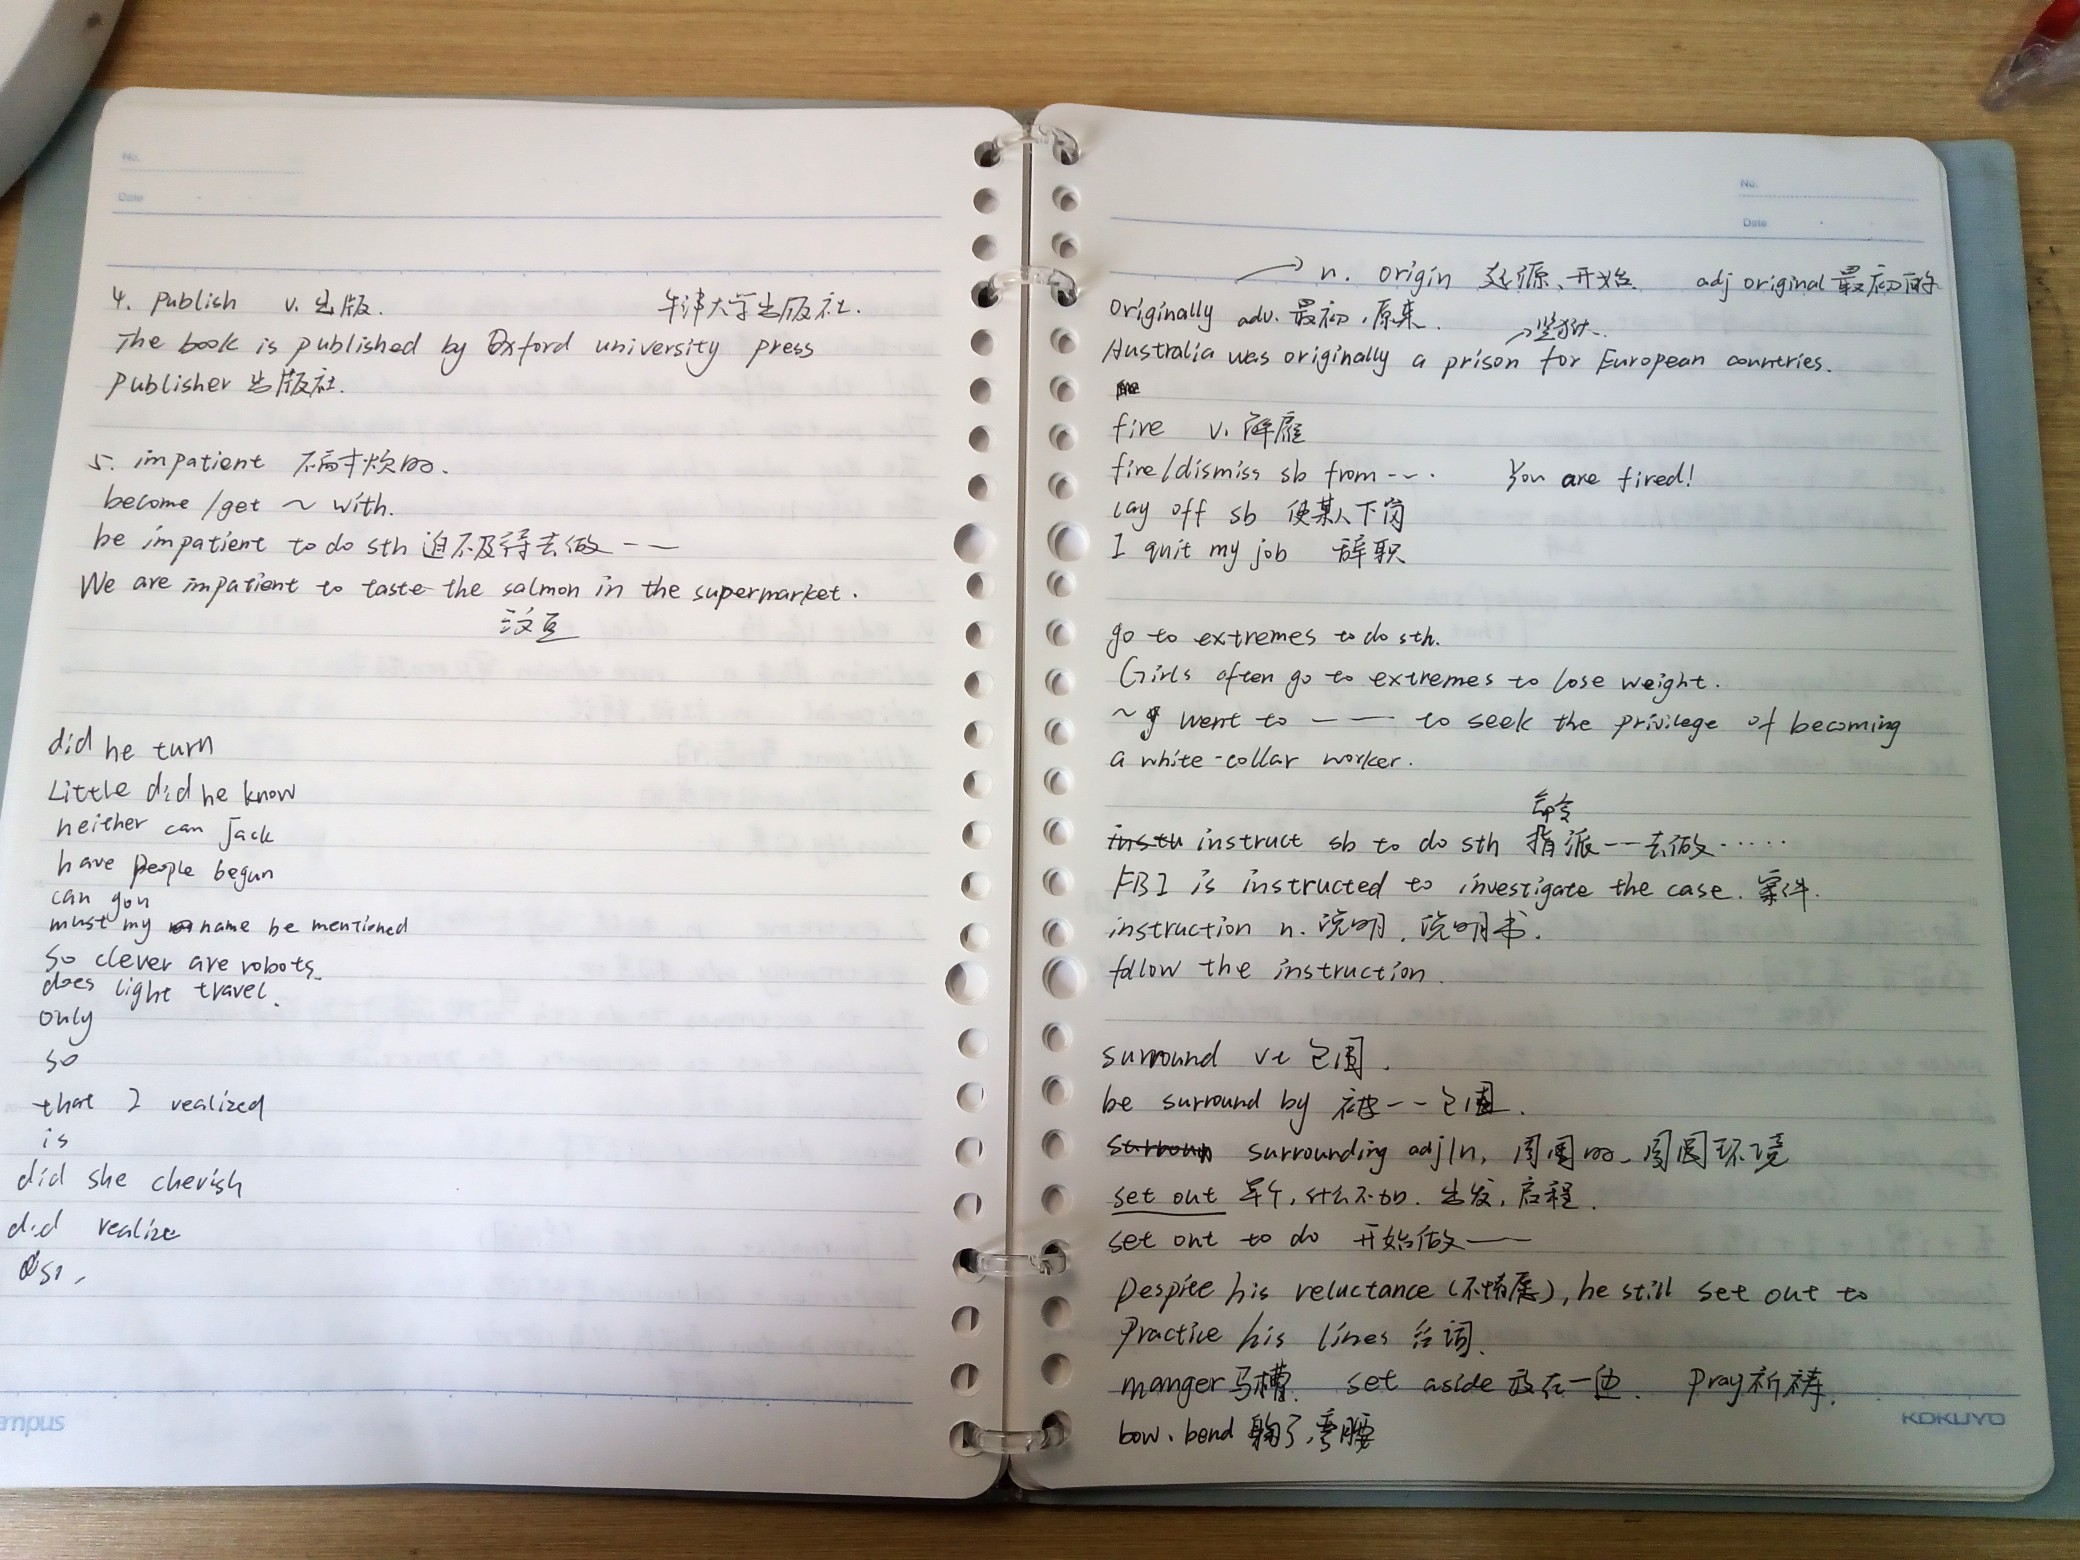 No.
Date
4. publish v. 出版. 牛津大学出版社.
The book is published by Oxford university press
publisher 出版社.
5. impatient 不耐烦的.
become /get ~ with.
be impatient to do sth 迫不及待去做——
We are impatient to taste the salmon in the supermarket.
did he turn
Little did he know
neither can Jack
have people begun
can you
must my name be mentioned
so clever are robots.
does light travel.
only
so
that I realized
is
did she cherish
did realize
mpus
No.
Date
n. origin 起源、开始. adj original 最初的
originally adv. 最初,原来. 监狱.
Australia was originally a prison for European countries.
fire v. 解雇
fire/dismiss sb from --. You are fired!
lay off sb 使某人下岗
I quit my job 辞职
go to extremes to do sth.
Girls often go to extremes to lose weight.
~ went to —— to seek the privilege of becoming
a white-collar worker.
命令
instu instruct sb to do sth 指派——去做·····
FBI is instructed to investigate the case. 案件.
instruction n. 说明,说明书.
follow the instruction.
surround vt 包围.
be surround by 被——包围.
surroun surrounding adj/n, 周围的、周围环境
set out 单个,什么不加. 出发,启程.
set out to do 开始做——
Despite his reluctance (不情愿), he still set out to
practice his lines 台词.
manger 马槽. set aside 放在一边. pray 祈祷.
bow、bend 鞠了,弯腰
KOKUYO